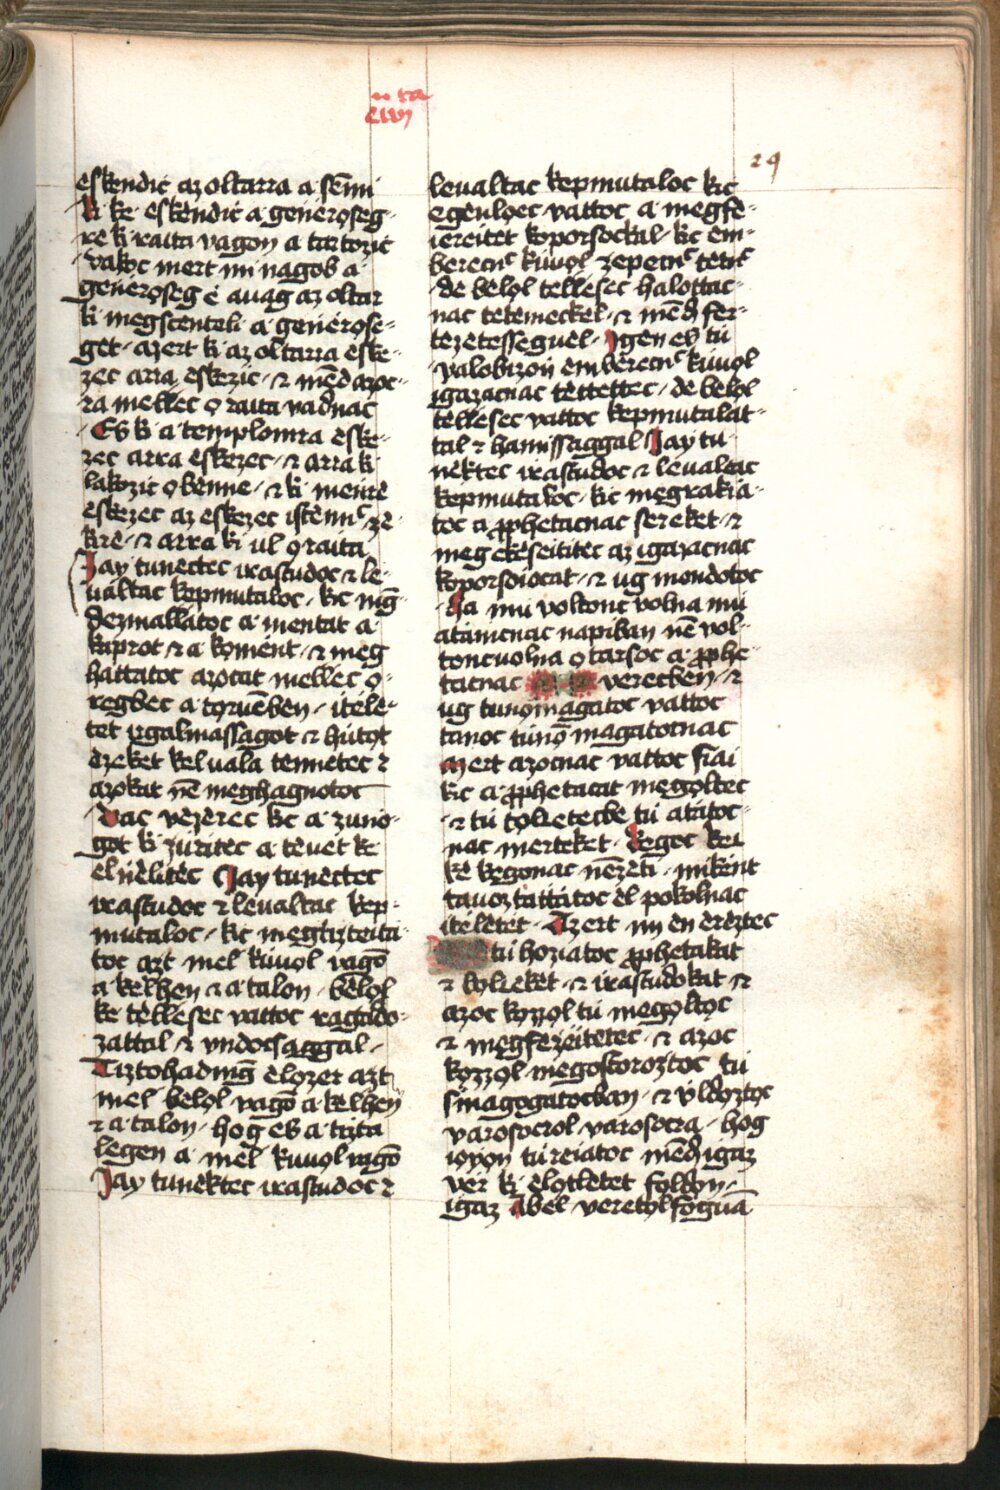 cıvı
29
eſkendic az oltarra a sēmi
ki kė eſkėndic a gėnėrǫseg-
rė ki raita vagon a tartozic
vakoc mert mi nagob a
gėnėrǫseg ė auag az oltar
ki megscenteli a gėnėrǫse-
gėt · azert ki az oltarra ėſke-
zec arra ėſkezic · ⁊ mēd azoc-
ra mellec ǫ raita vadnac
Eſ ki a templomra ėſke-
zec arra ėſkezec · ⁊ arra ki
lakozic ǫ bėnne · ⁊ ki menrė
ėſkezec az eſkezec iſtėnnc zė-
kirė · ⁊ arra ki ul ǫ raita
Jay tunectec iraſtudoc ⁊ lė-
ualtac kepmutaloc · kic mēg
dezmallatoc a mentat a
kaprot ⁊ a kǫmėnt · ⁊ meg
hattatoc azocat mellec ǫ-
regbec a tǫruēben · itėlė-
tėt yrgalmaſſagot ⁊ hutǫt
ėzeket kel uala tennetec ⁊
azokat nē meghagnotoc
Vac vėzėrec kic a zuno-
got ki zǔritec a tėuėt kė
elnėlitėc Jay tunectec
iraſtudoc ⁊ leualtac kep-
mutaloc · kic megtiztėita-
toc azt mel kiuǫl vagō
a kėlhen ⁊ a talon · bėlǫl
kė tėllėsec vattoc ragado-
zattal ⁊ vndocsaggal ·
Tiztohadmēg ėlǫzer azt
mel belǫl vagō a kėlhen
⁊ a talon · hog eſ a tizta
legen a mėl kiuǫl vagō
Jay tunėktec iraſtudoc ⁊
leualtac kepmutaloc kic
egėnlǫec vattoc a megfe-
iereitėt koporsockal · kic em-
berecnc kiuǫl zepecnc tėtnc
de belǫl tėllėsec halottac-
nac tėtemeckel · ⁊ mēdē fer-
tėzetėſſeguėl · Jgėn eſ tu
valobizon ėmberecnc kiuǫl
igazacnac tėttettec · de bėlǫl
tėllėsec vattoc kepmutalat-
tal ⁊ hamiſſaggal Jay tu
nėktec iraſtudoc ⁊ leualtac
kepmutaloc · kic mēgrakia-
toc a ꝓphetacnac sereket · ⁊
meg ėkėseititec az igazacnac
koporsoiocat · ⁊ ug mondotoc
Ha mu voltonc volna mu
atāincnac napiban nē vol-
toncuolna ǫ tarsoc a ꝓphe-
tacnac verecben · ⁊
ug tunǫmagatoc vattoc
tanoc tunǫ magatocnac
mert azocnac vattoc fiai
kic a ꝓphetacat megǫltec
⁊ tu tǫltetecbe tu atatoc-
nac merteket · kegoc kei
kė kegonac nēzeti · mikent
tauoztattatoc ėl pokolnac
itėletėt · Azert im en ereztec
tu hoziatoc ꝓphetakat
⁊ bǫlceket · ⁊ iraſtudokat ⁊
azoc kǫzzǫl tu megǫltoc
⁊ mēgfezėitėtec · ⁊ azoc
kǫzzǫl megoſtoroztoc tu
sinagogatocban · ⁊ vldǫztǫc
varosocrol varosocra · hog
iǫyǫn tu reiatoc mēdē igaz
vėr ki ėlǫtletėt fǫldǫn ·
igaz Abėl verėtǫl foguā